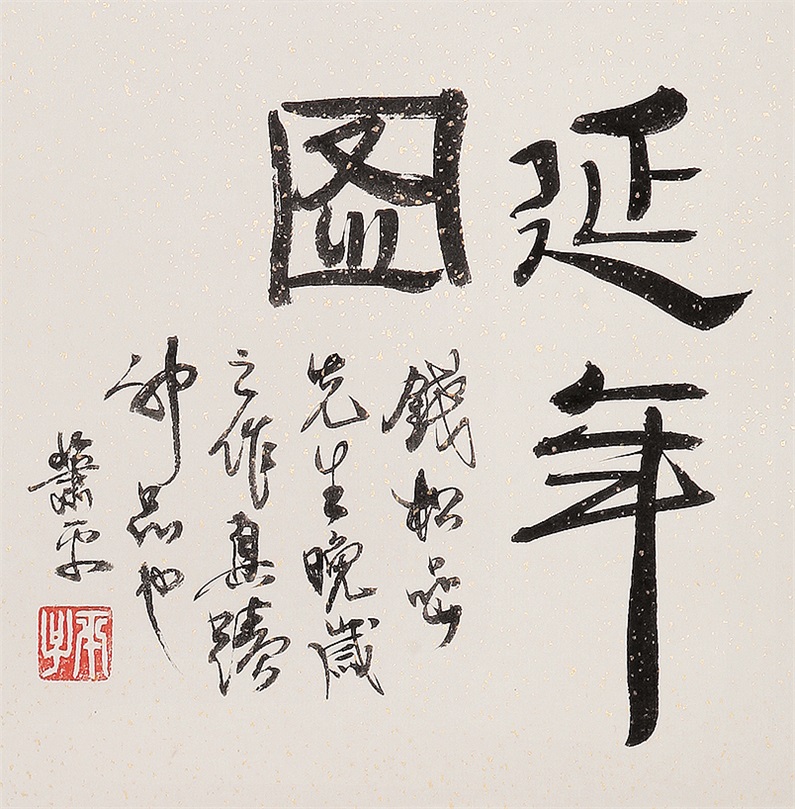 延年
图
錢松喦
先生晚歲
之作真蹟
神品也
蕭平